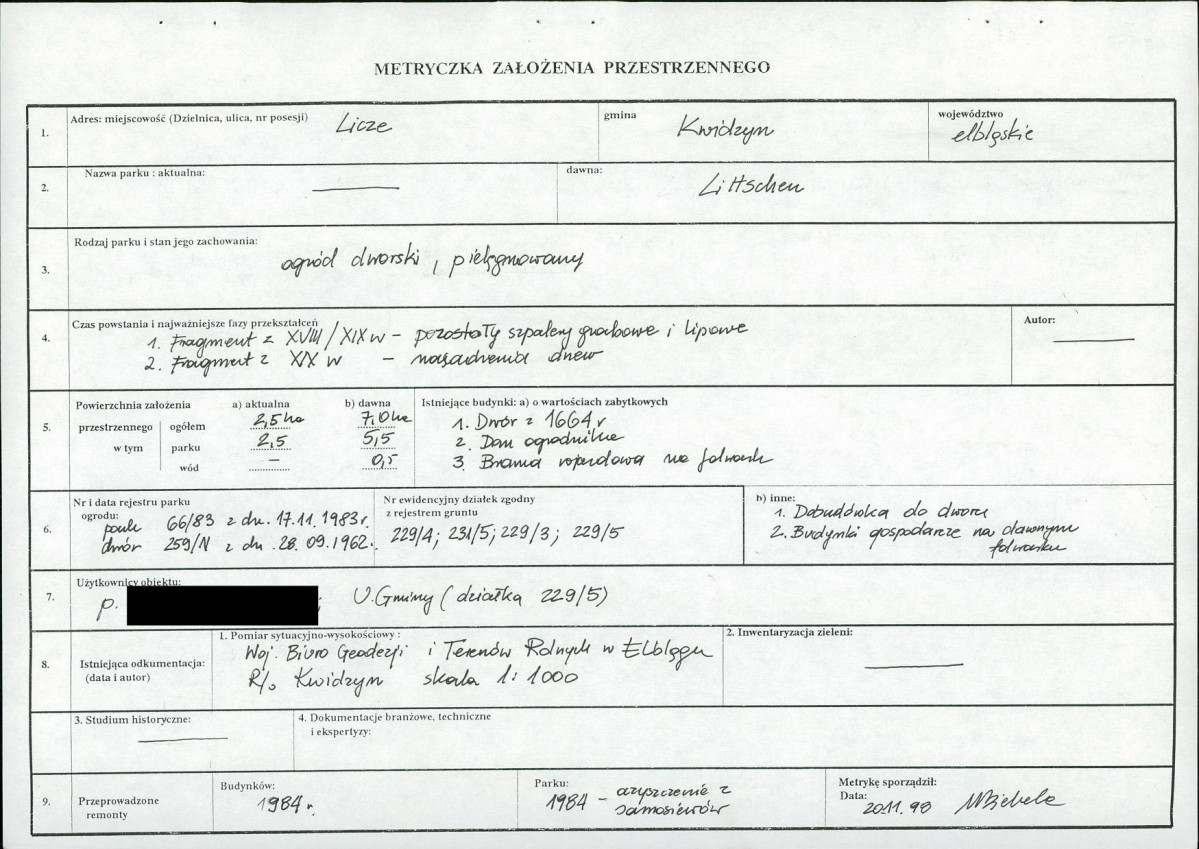 METRYCZKA ZAŁOŻENIA PRZESTRZENNEGO
1. Adres: miejscowość (Dzielnica, ulica, nr posesji) Licze
gmina Kwidzyn
województwo elbląskie
2. Nazwa parku : aktualna: ———
dawna: Littschen
3. Rodzaj parku i stan jego zachowania:
ogród dworski, pielęgnowany
4. Czas powstania i najważniejsze fazy przekształceń
1. Fragment z XVIII/XIX w – pozostały szpalery grabowe i lipowe
2. Fragment z XIX w – nasadzenia drzew
Autor: ———
5. Powierzchnia założenia a) aktualna b) dawna
przestrzennego ogółem 2,5 ha 7,0 ha
w tym parku 2,5 5,5
wód – 0,5
Istniejące budynki: a) o wartościach zabytkowych
1. Dwór z 1664 r
2. Dom ogrodnika
3. Brama wjazdowa na folwark
6. Nr i data rejestru parku
ogrodu:
park 66/83 z dn. 17.11.1983r.
dwór 259/N z dn. 28.09.1962.
Nr ewidencyjny działek zgodny
z rejestrem gruntu
229/4; 231/5; 229/3; 229/5
b) inne:
1. Dobudówka do dworu
2. Budynki gospodarcze na dawnym
folwarku
7. Użytkownicy obiektu:
p. ; U.Gminy (działka 229/5)
8. Istniejąca odkumentacja:
(data i autor)
1. Pomiar sytuacyjno-wysokościowy :
Woj. Biuro Geodezji i Terenów Rolnych w Elblągu
R/o Kwidzyn skala 1:1000
2. Inwentaryzacja zieleni: ———
3. Studium historyczne: ———
4. Dokumentacje branżowe, techniczne
i ekspertyzy:
9. Przeprowadzone
remonty
Budynków:
1984 r.
Parku:
1984 – oczyszczenie z
samosiewów
Metrykę sporządził:
Data: 20.11.98